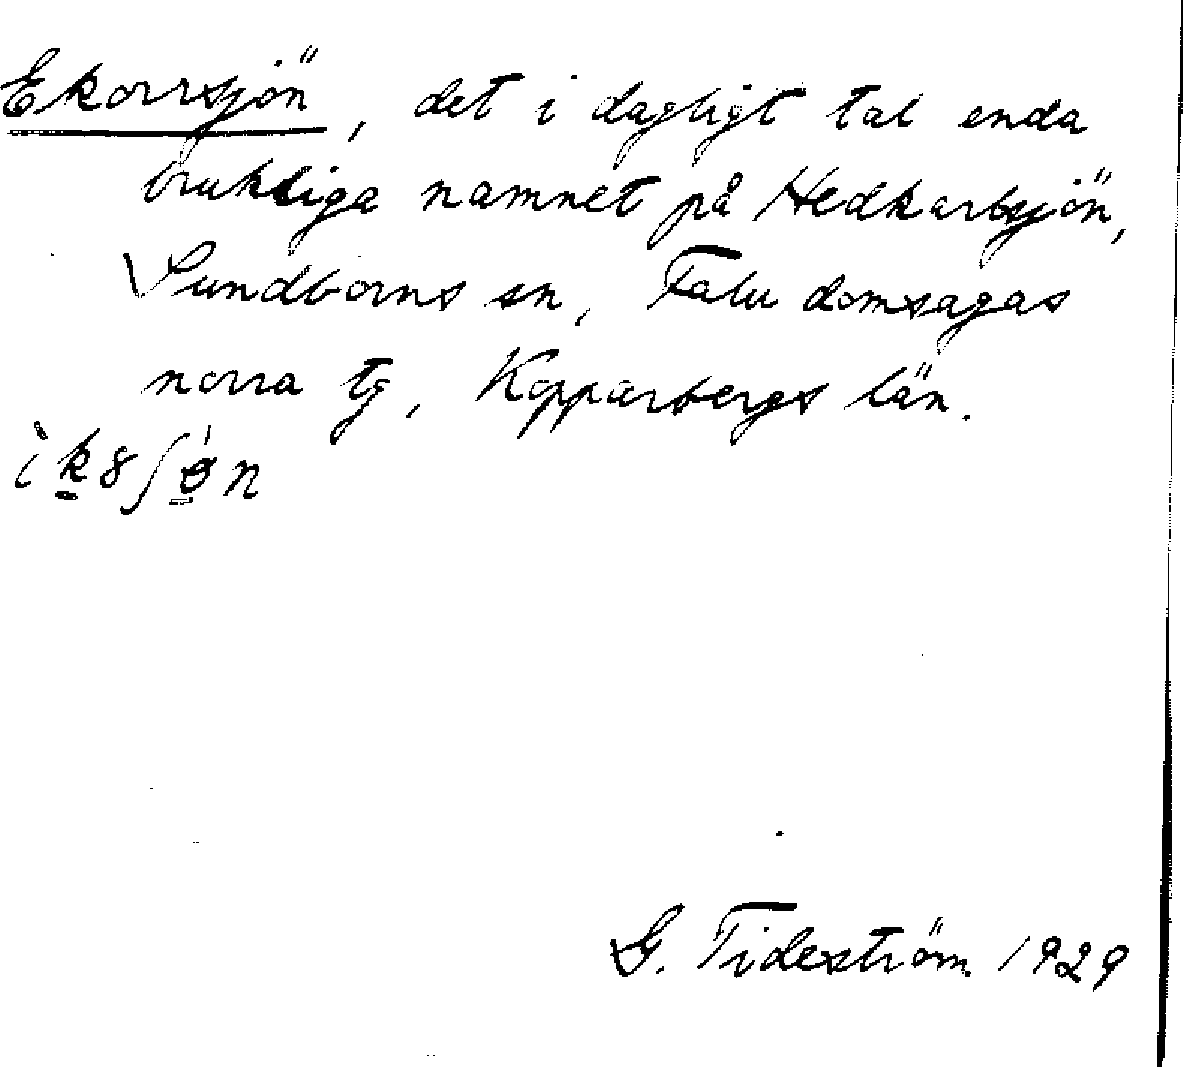 Ekorrsjön, det i dagligt tal enda
brukliga namnet på Hedkarbsjön,
Sundborns sn, Falu domsagas
norra tg, Kopparbergs län.
G. Tideström 1929